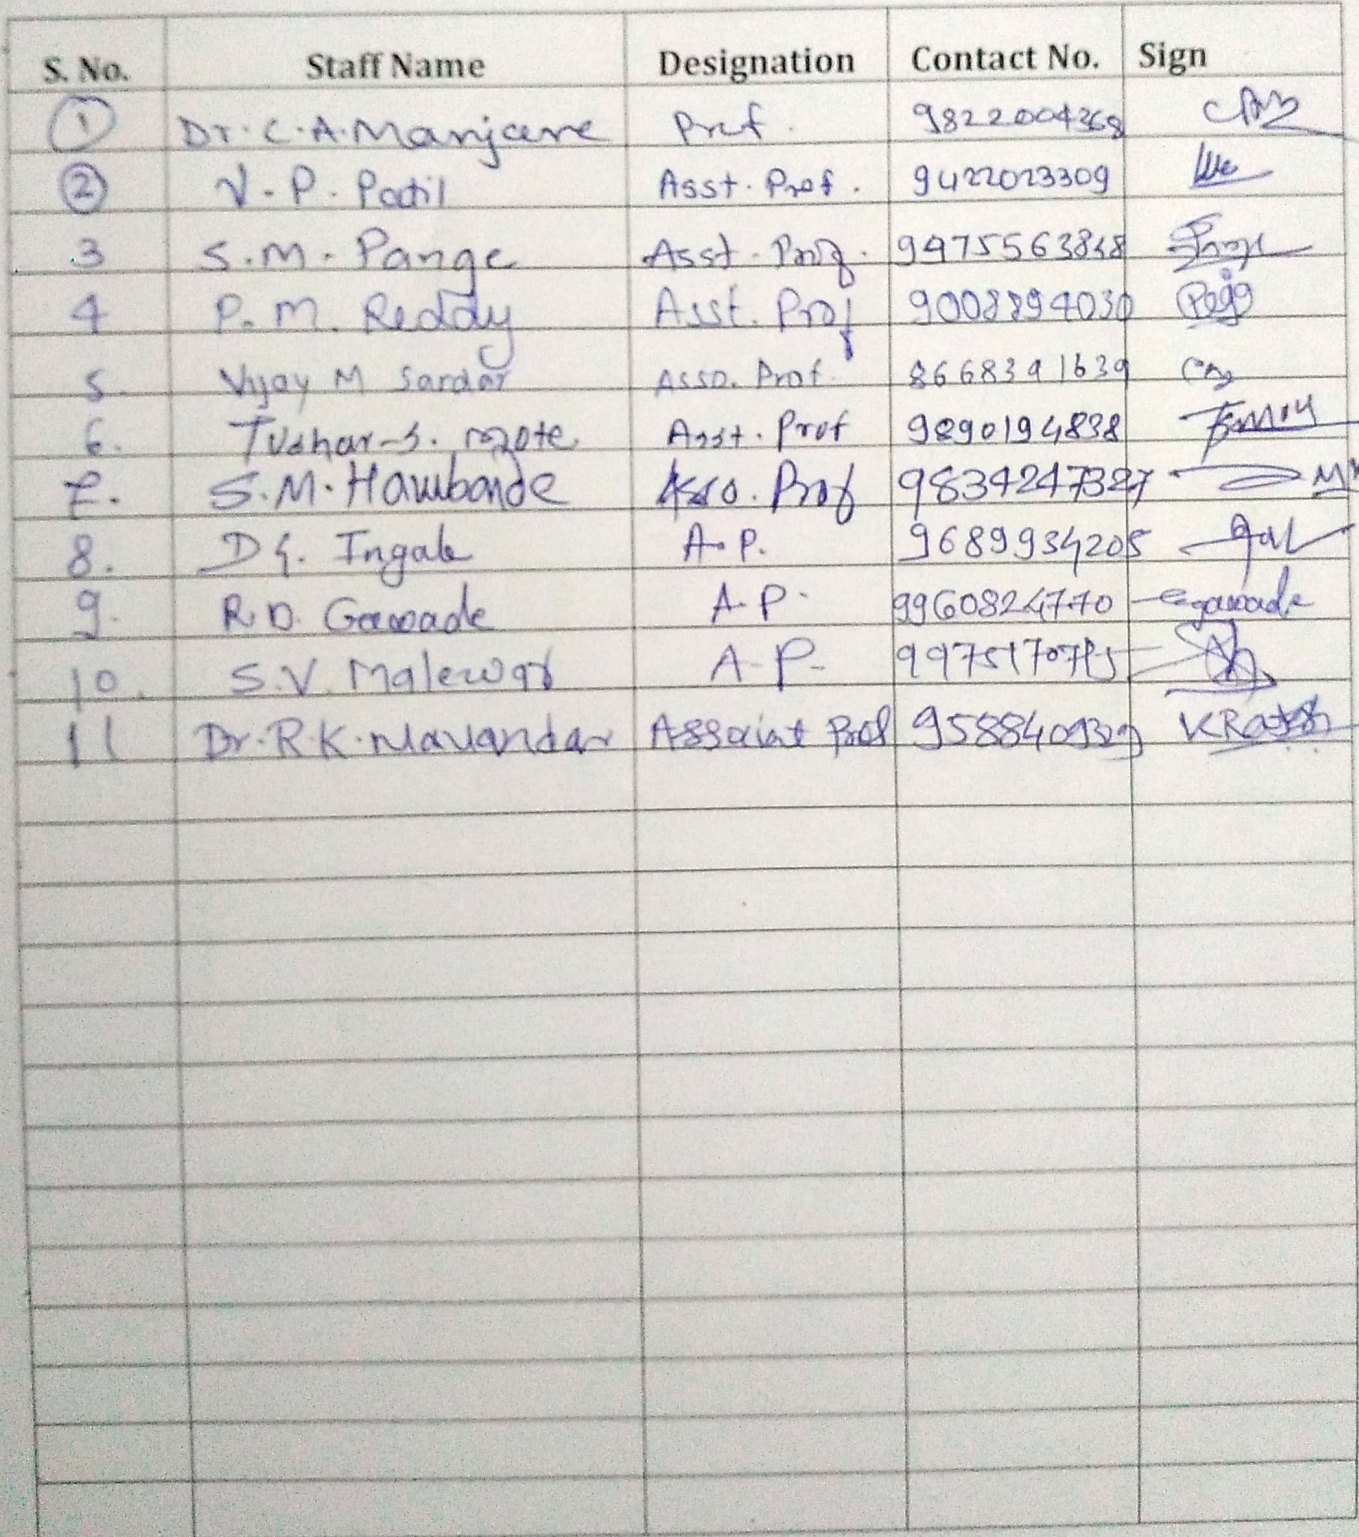 S. No. Staff Name Designation Contact No. Sign
1 Dr. C. A. Manjare Prof. 9822004368
2 V. P. Patil Asst. Prof. 9422023309
3 S. M. Pange Asst. Prof. 9975563848
4 P. M. Reddy Asst. Prof 9008894030
5. Vijay M Sardar Asso. Prof. 8668391639
6. Tushar. S. Mote Asst. Prof 9890194838
7. S. M. Hambarde Asso. Prof 9834247327
8. D G. Ingale A. P. 9689934205
9. R. D. Gawade A. P. 9960824770 Gawade
10. S. V. Malewar A. P.
11 Dr. R. K. Mavandar Associat Prof